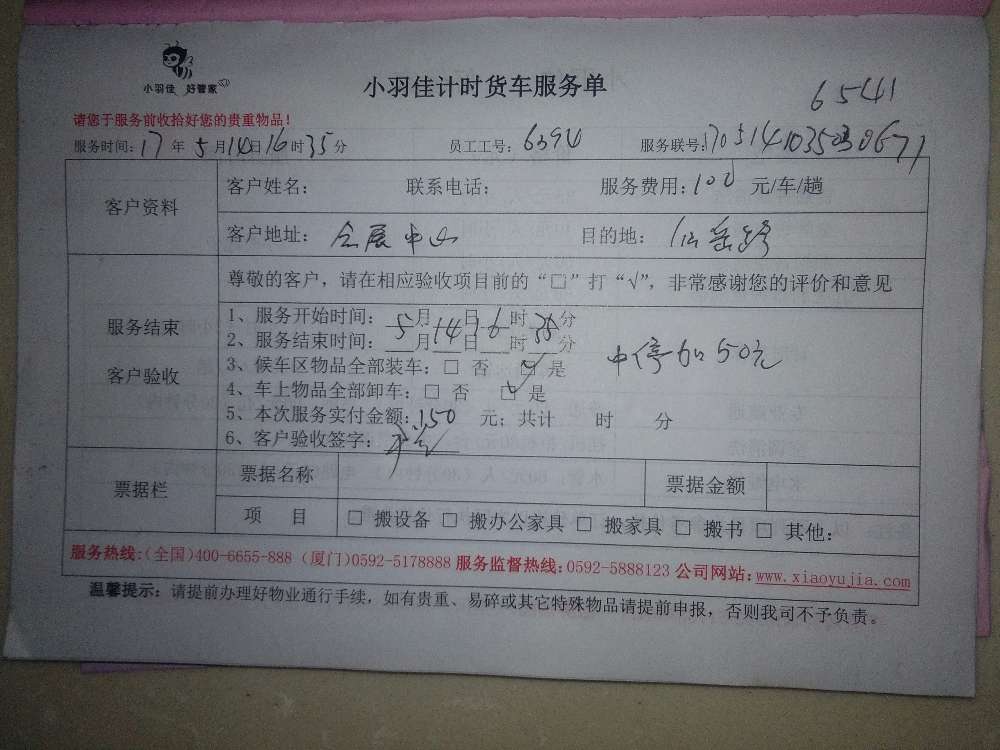 小羽佳 好管家
小羽佳计时货车服务单
6541
请您于服务前收拾好您的贵重物品！
服务时间：17年5月14日16时35分 员工工号：6394 服务联号：
客户资料
客户姓名： 联系电话： 服务费用：100 元/车/趟
客户地址：会展中心 目的地：仙岳路
服务结束
客户验收
尊敬的客户，请在相应验收项目前的“□”打“√”，非常感谢您的评价和意见
1、服务开始时间：5月14日16时35分
2、服务结束时间：___月___日___时___分
中停加50元
3、候车区物品全部装车：□ 否 ☑ 是
4、车上物品全部卸车：□ 否 ☑ 是
5、本次服务实付金额：150 元；共计 时 分
6、客户验收签字：
票据栏
票据名称 票据金额
项 目 □ 搬设备 □ 搬办公家具 □ 搬家具 □ 搬书 □ 其他：
服务热线：（全国）400-6655-888（厦门）0592-5178888 服务监督热线：0592-5888123 公司网站：www.xiaoyujia.com
温馨提示：请提前办理好物业通行手续，如有贵重、易碎或其它特殊物品请提前申报，否则我司不予负责。